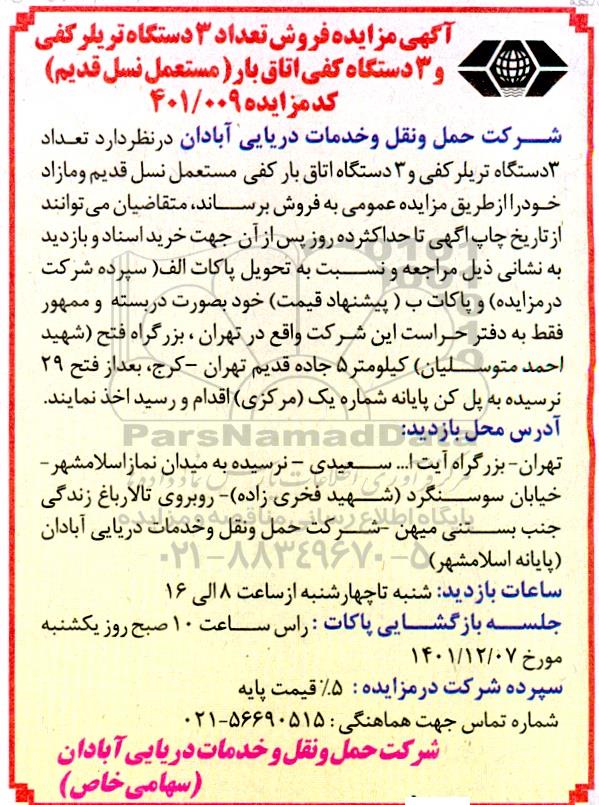 آگهی مزایده فروش تعداد ۳ دستگاه تریلر کفی
و ۳ دستگاه کفی اتاق بار (مستعمل نسل قدیم)
کد مزایده ۴۰۱/۰۰۹
شرکت حمل ونقل وخدمات دریایی آبادان درنظردارد تعداد
۳دستگاه تریلر کفی و۳ دستگاه اتاق بار کفی مستعمل نسل قدیم ومازاد
خودرا ازطریق مزایده عمومی به فروش برساند، متقاضیان می توانند
از تاریخ چاپ اگهی تا حداکثرده روز پس از آن جهت خرید اسناد و بازدید
به نشانی ذیل مراجعه و نسبت به تحویل پاکات الف( سپرده شرکت
درمزایده) و پاکات ب ( پیشنهاد قیمت) خود بصورت دربسته و ممهور
فقط به دفتر حراست این شرکت واقع در تهران ، بزرگراه فتح (شهید
احمد متوسلیان) کیلومتر۵ جاده قدیم تهران -کرج، بعداز فتح ۲۹
نرسیده به پل کن پایانه شماره یک (مرکزی) اقدام و رسید اخذ نمایند.
آدرس محل بازدید:
ParsNamadData
تهران- بزرگراه آیت ا... سعیدی - نرسیده به میدان نمازاسلامشهر-
خیابان سوسنگرد (شهید فخری زاده)- روبروی تالارباغ زندگی
پایگاه اطلاع رسانی مناقصه و مزایده
جنب بستنی میهن -شرکت حمل ونقل وخدمات دریایی آبادان
(پایانه اسلامشهر)
۰۲۱-۸۸۳۴۹۶۷۰-۵
ساعات بازدید: شنبه تاچهارشنبه از ساعت ۸ الی ۱۶
جلسه بازگشایی پاکات : راس ساعت ۱۰ صبح روز یکشنبه
مورخ ۱۴۰۱/۱۲/۰۷
سپرده شرکت درمزایده : ۵٪ قیمت پایه
شماره تماس جهت هماهنگی : ۵۶۶۹۰۵۱۵-۰۲۱
شرکت حمل ونقل و خدمات دریایی آبادان
(سهامی خاص)